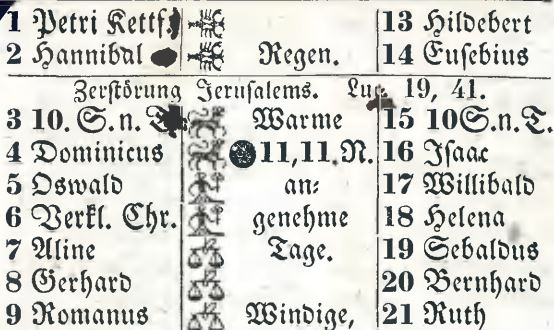 1 Petri Kettf. 13 Hildebert
2 Hannibal Regen. 14 Eusebius
Zerstörung Jerusalems. Luc. 19, 41.
3 10. S. n. Warme 15 10 S. n. T.
4 Dominicus 11,11. N. 16 Isaac
5 Oswald an: 17 Willibald
6 Verkl. Chr. genehme 18 Helena
7 Aline Tage. 19 Sebaldus
8 Gerhard 20 Bernhard
9 Romanus Windige, 21 Ruth